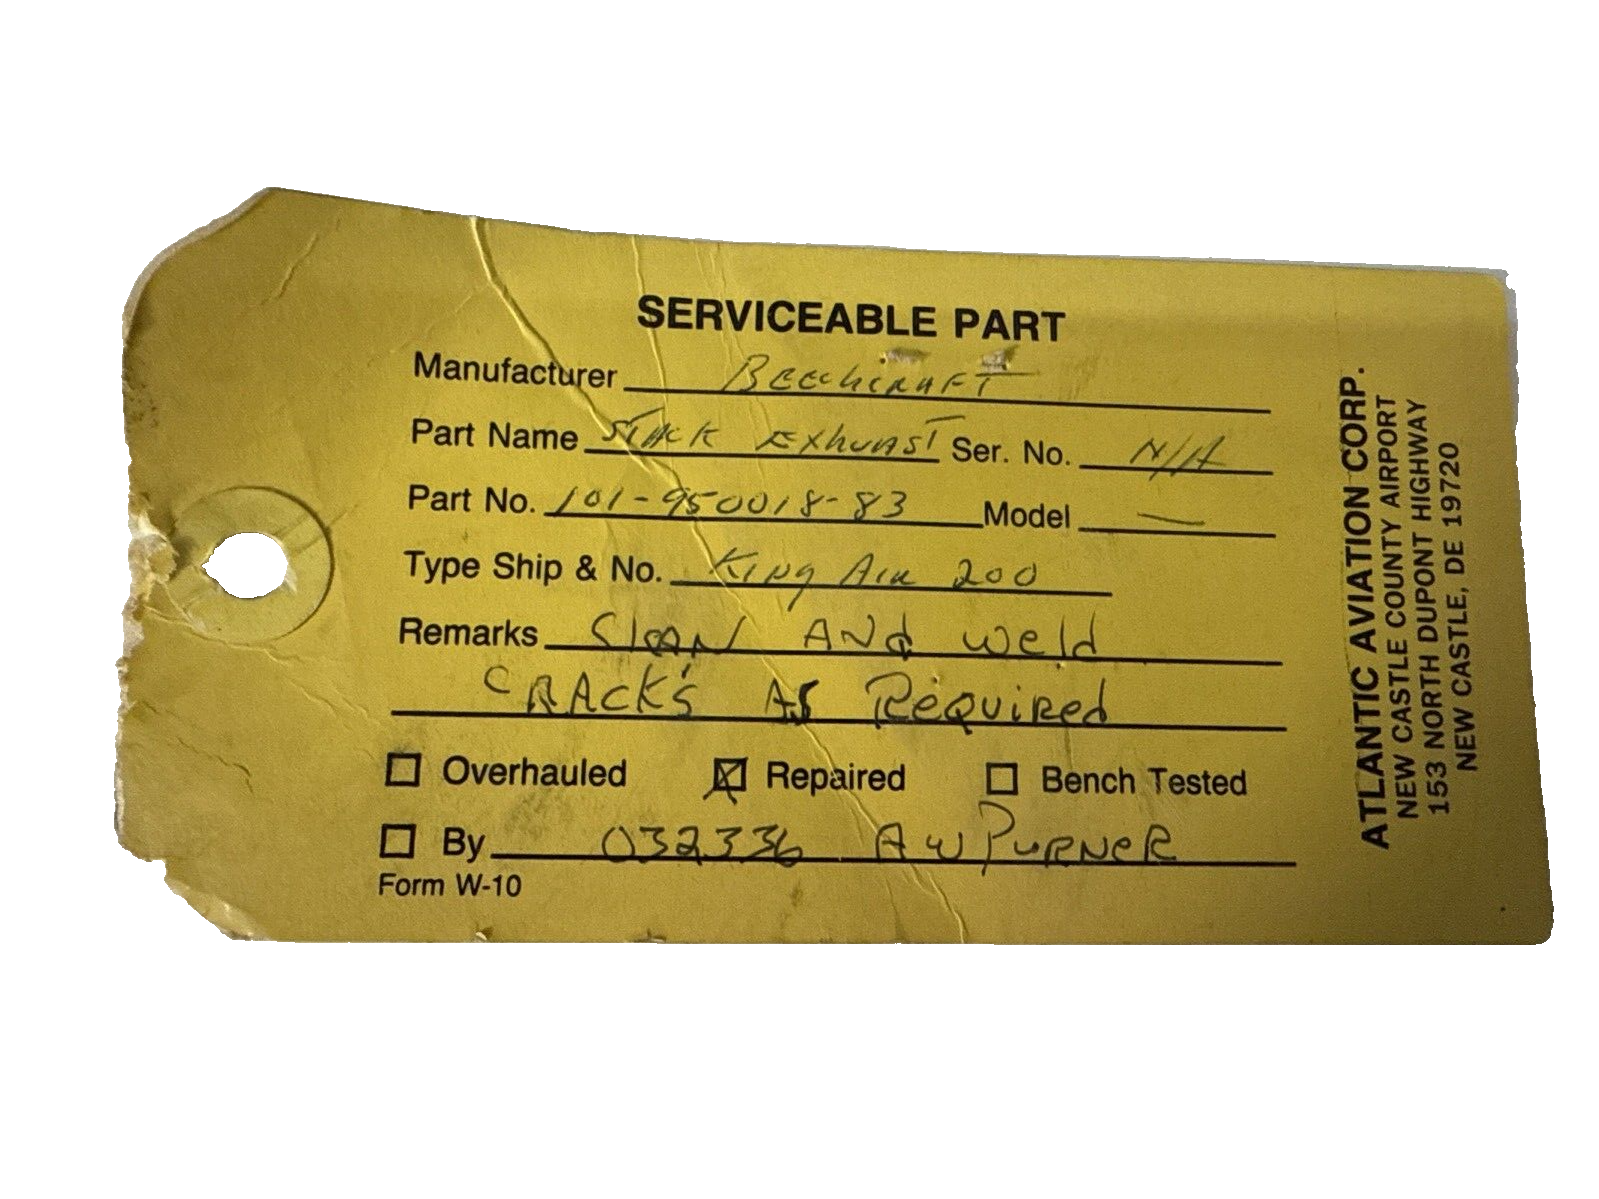 SERVICEABLE PART
Manufacturer Beechcraft
Part Name Stack Exhuast Ser. No. N/A
Part No. 101-950018-83 Model —
Type Ship & No. King Air 200
Remarks Clean And weld
CRACK's As Required
Overhauled Repaired Bench Tested
By 032336 AW PURNER
Form W-10
ATLANTIC AVIATION CORP.
NEW CASTLE COUNTY AIRPORT
153 NORTH DUPONT HIGHWAY
NEW CASTLE, DE 19720